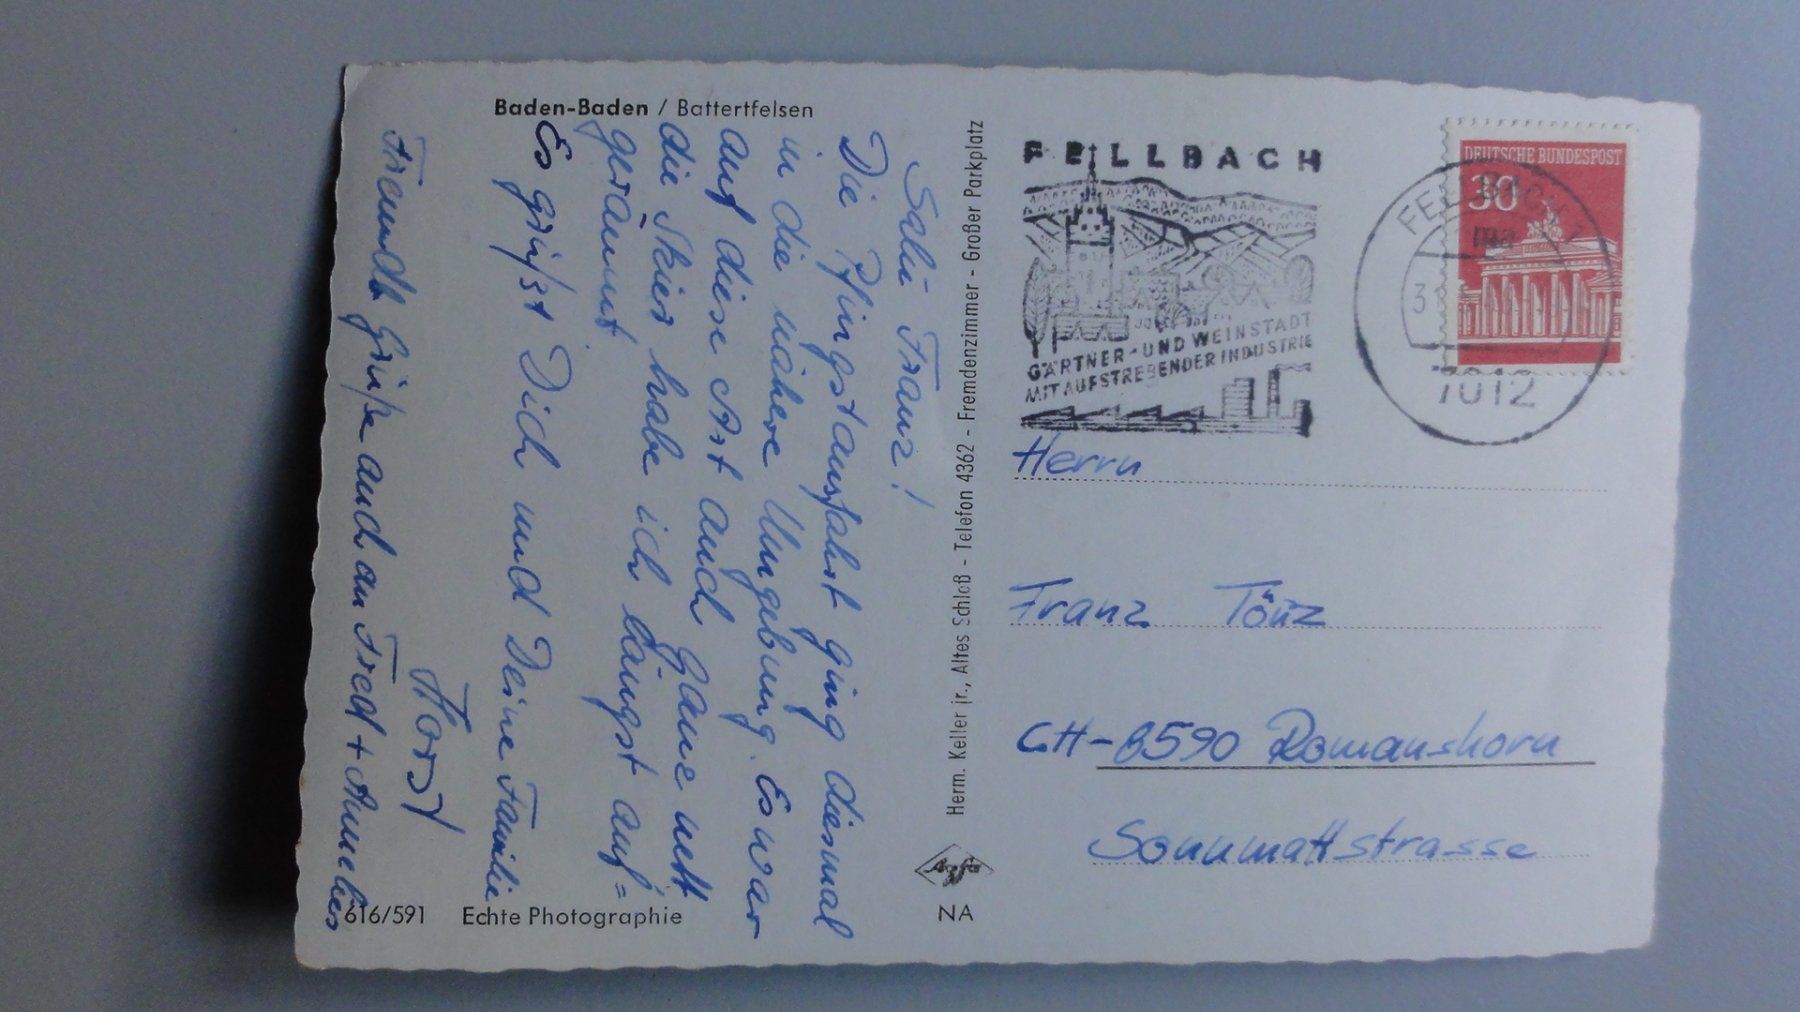 Baden-Baden / Battertfelsen
Salü Franz!
Die Pfingstausfahrt ging diesmal
in die nähere Umgebung. Es war
auf diese Art auch ganz nett
die Skier habe ich längst auf=
geräumt.
Es grüßt Dich und Deine Familie
Horst
Freundl. Grüße auch an Fred + Annelies
616/591 Echte Photographie
Herm. Keller jr., Altes Schloß - Telefon 4362 - Fremdenzimmer - Großer Parkplatz
Agfa
NA
FELLBACH
GÄRTNER- UND WEINSTADT
MIT AUFSTREBENDER INDUSTRIE
DEUTSCHE BUNDESPOST
30
FELLBACH
7012
Herrn
Franz Tönz
CH-8590 Romanshorn
Sonnmattstrasse